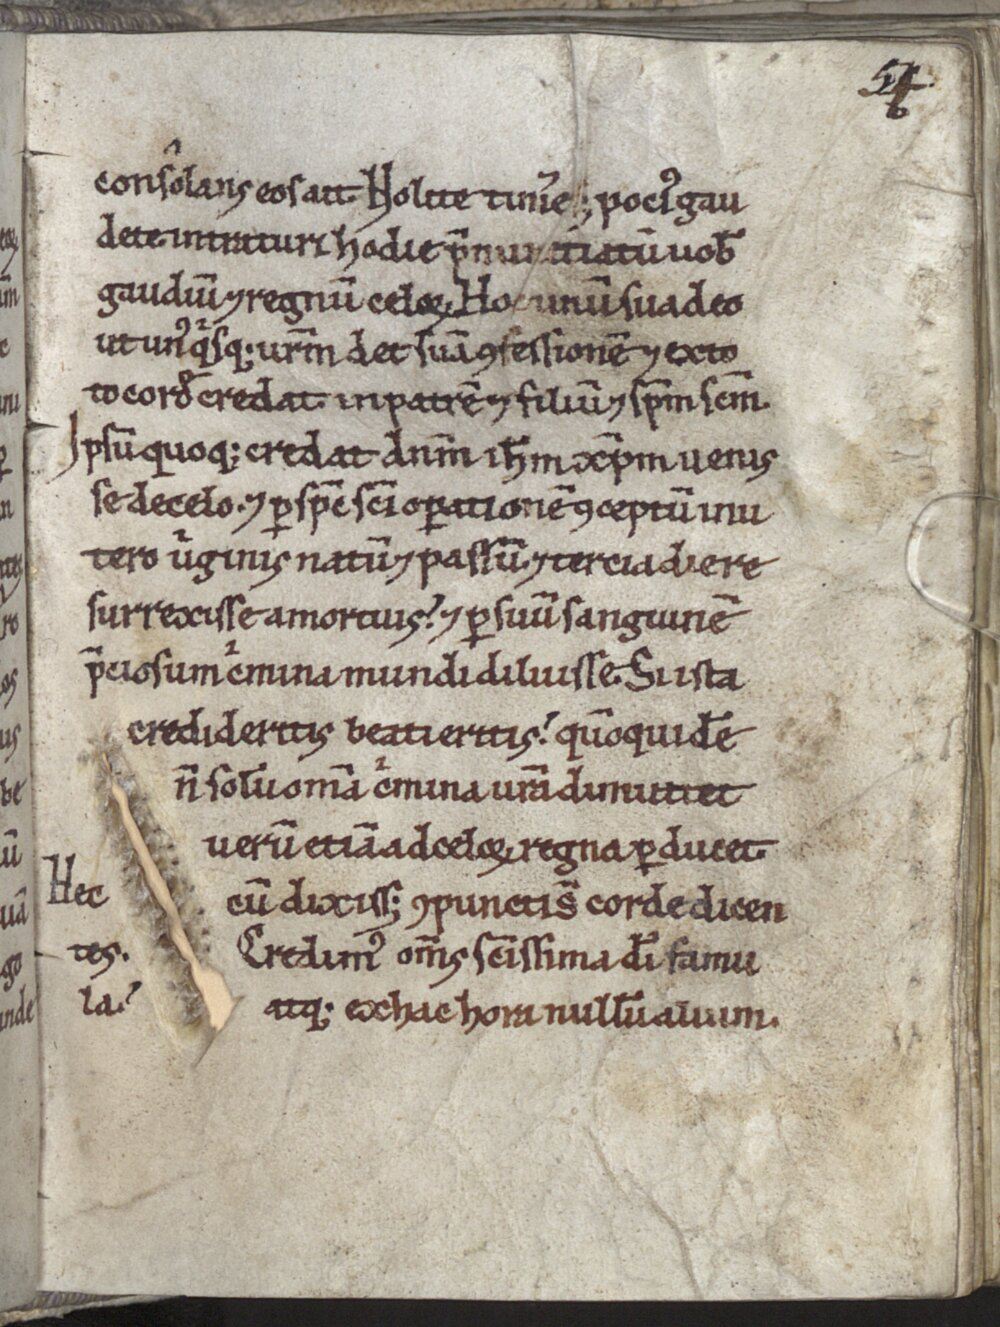 54
consolans eos ait. Nolite timẽ; poci᷒ gau
dete. intraturi hodie p̃nuntiatũ uob̃
gaudiũ ⁊ regnũ celoꝝ. Hoc unũ suadeo
ut un᷒q̾sq; ur̃m det suã ꝯfessionẽ ⁊ ex to
to cord̃ credat. in patrẽ ⁊ filiũ ⁊ sp̃m sc̃m.
Ipsũ quoq; credat dñm ih̃m xp̃m uenis
se de celo. ⁊ ꝑ sp̃c sc̃i oꝑationẽ ꝯceptũ in u
tero u̾ginis natũ ⁊ passũ. ⁊ tercia die re
surrexisse a mortuis. ⁊ ꝑ suũ sanguinẽ
p̃ciosum c̾mina mundi diluisse. Si ista
credideritis beati eritis. quõ quidẽ
ñ solũ om̃a c̾mina ur̃a dimittet
uerũ etiã ad celoꝝ regna ꝑducet.
Hec cũ dixiss; ꝯpunctis corde dicen
tes. Credim᷒ om̃s sc̃issima dĩ famu
la. atq; ex hac hora nullũ alium.